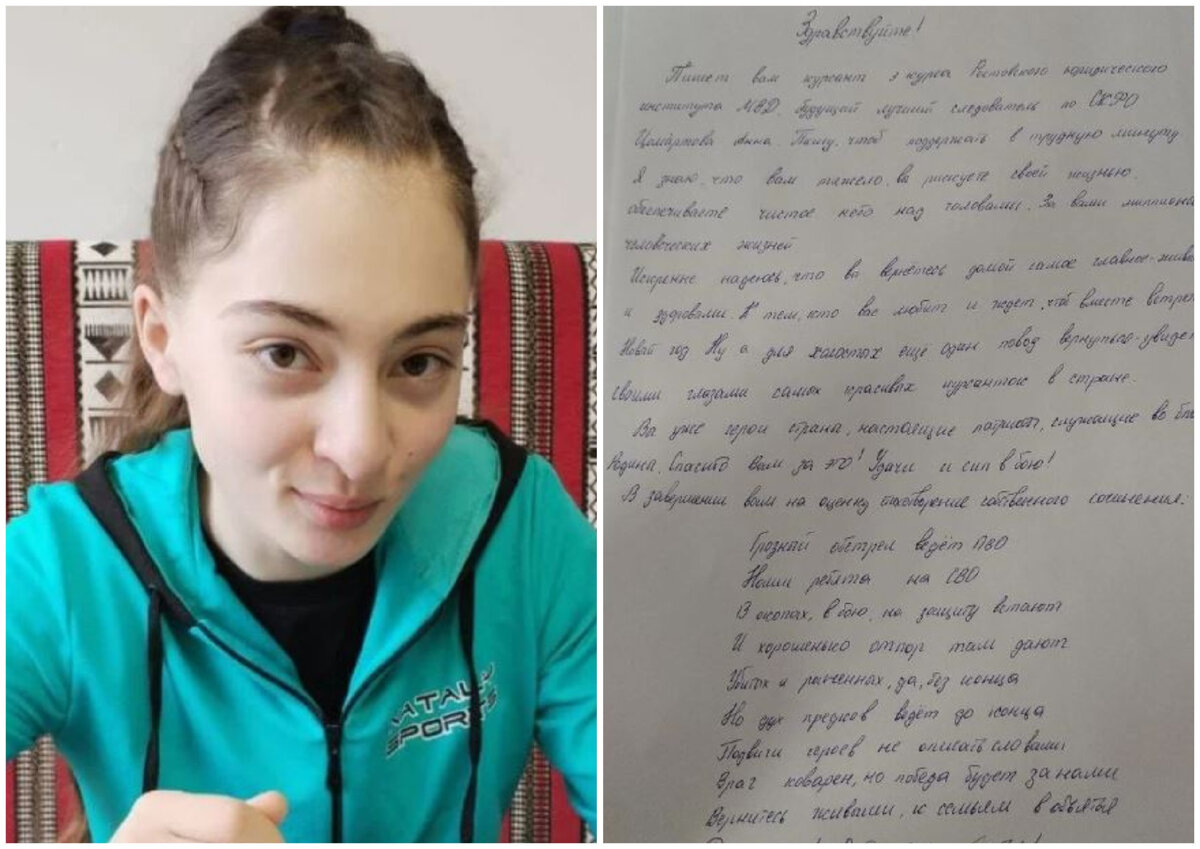 NATALLI
SPORTS
Здравствуйте!
Пишет вам курсант 3 курса Ростовского юридического
института МВД, будущий лучший следователь по СКФО
Цомартова Анна. Пишу, чтоб поддержать в трудную минуту
Я знаю, что вам тяжело, вы рискуете своей жизнью,
обеспечиваете чистое небо над головами. За вами миллионы
человеческих жизней
Искренне надеюсь, что вы вернётесь домой самое главное-живы
и здоровыми. К тем, кто вас любит и ждет, чтоб вместе встрет
Новый год Ну а для холостых ещё один повод вернуться-увидет
своими глазами самых красивых курсанток в стране.
Вы уже герои страны, настоящие патриоты, служащие во бла
Родины. Спасибо вам за это! Удачи и сил в бою!
В завершении вам на оценку стихотворение собственного сочинения:
Грозный обстрел ведёт ПВО
Наши ребята на СВО
В окопах, в бою, на защиту встают
И хорошенько отпор там дают
Убитых и раненных, да, без конца
Но дух предков ведёт до конца
Подвиги героев не описать словами
Враг коварен, но победа будет за нами
Вернитесь живыми, к семьям в объятья